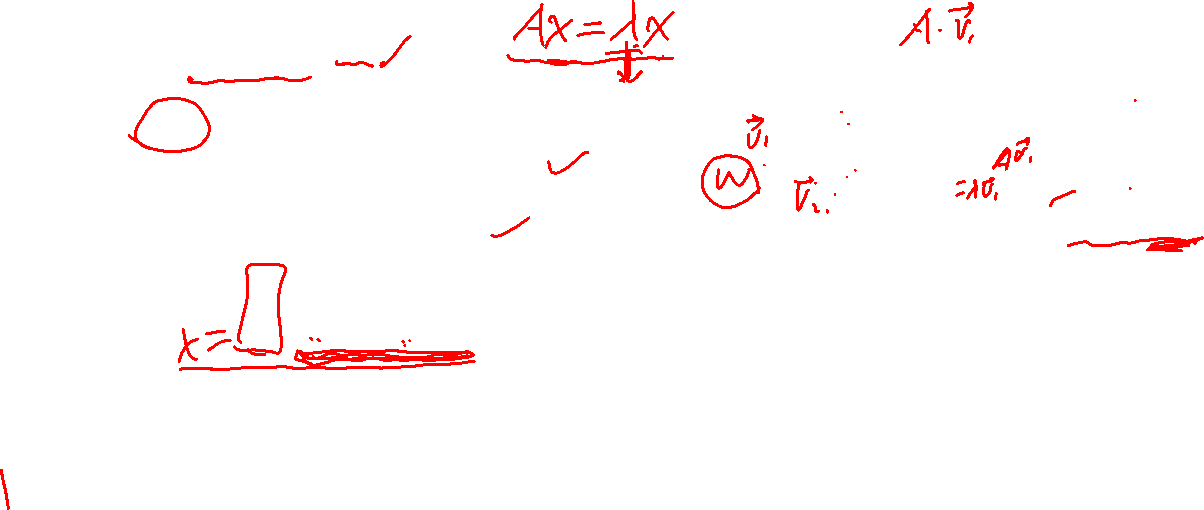 Ax = λx
A · v⃗₁
v⃗₁
W
v⃗₂
Av⃗₁
= λv⃗₁
x =